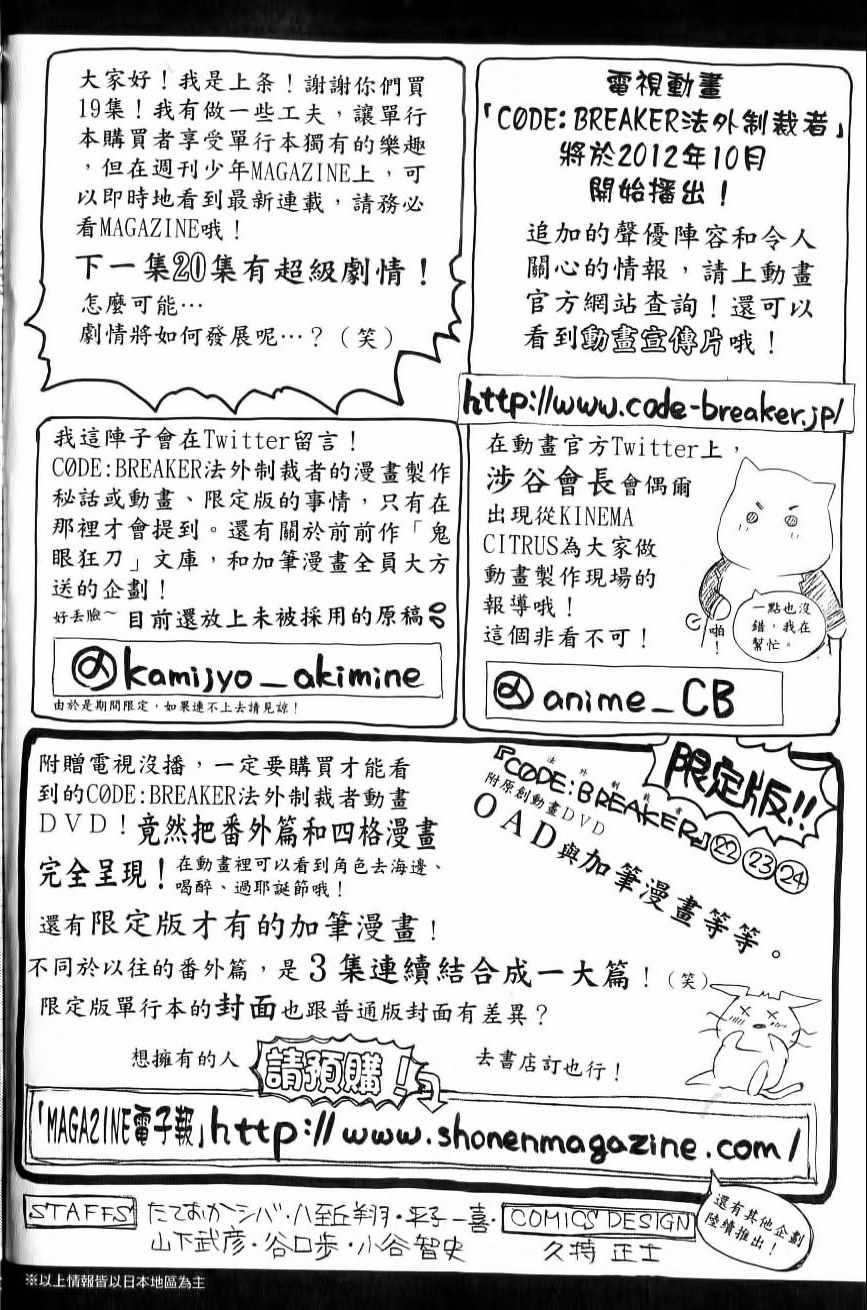 大家好！我是上条！謝謝你們買
19集！我有做一些工夫，讓單行
本購買者享受單行本獨有的樂趣
，但在週刊少年MAGAZINE上，可
以即時地看到最新連載，請務必
看MAGAZINE哦！
下一集20集有超級劇情！
怎麼可能…
劇情將如何發展呢…？（笑）
電視動畫
「CØDE:BREAKER法外制裁者」
將於2012年10月
開始播出！
追加的聲優陣容和令人
關心的情報，請上動畫
官方網站查詢！還可以
看到動畫宣傳片哦！
http://www.code-breaker.jp/
我這陣子會在Twitter留言！
CØDE:BREAKER法外制裁者的漫畫製作
秘話或動畫、限定版的事情，只有在
那裡才會提到。還有關於前前作「鬼
眼狂刀」文庫，和加筆漫畫全員大方
送的企劃！
好丟臉～目前還放上未被採用的原稿
@kamijyo_akimine
由於是期間限定，如果連不上去請見諒！
在動畫官方Twitter上，
涉谷會長會偶爾
出現從KINEMA
CITRUS為大家做
動畫製作現場的
報導哦！
這個非看不可！
啪！
一點也沒
錯，我在
幫忙。
@anime_CB
附贈電視沒播，一定要購買才能看
到的CØDE:BREAKER法外制裁者動畫
ＤＶＤ！竟然把番外篇和四格漫畫
完全呈現！在動畫裡可以看到角色去海邊、
喝醉、過耶誕節哦！
還有限定版才有的加筆漫畫！
不同於以往的番外篇，是３集連續結合成一大篇！（笑）
限定版單行本的封面也跟普通版封面有差異？
限定版!!
法外制裁者
『CØDE:BREAKER』㉒㉓㉔
附原創動畫ＤＶＤ
ＯＡＤ與加筆漫畫等等。
想擁有的人
請預購！
去書店訂也行！
「MAGAZINE電子報」http://www.shonenmagazine.com/
STAFFS
たておかシバ・八至丘翔・平子一喜・
山下武彦・谷口歩・小谷智史
COMICS DESIGN
久持正士
還有其他企劃
陸續推出！
※以上情報皆以日本地區為主